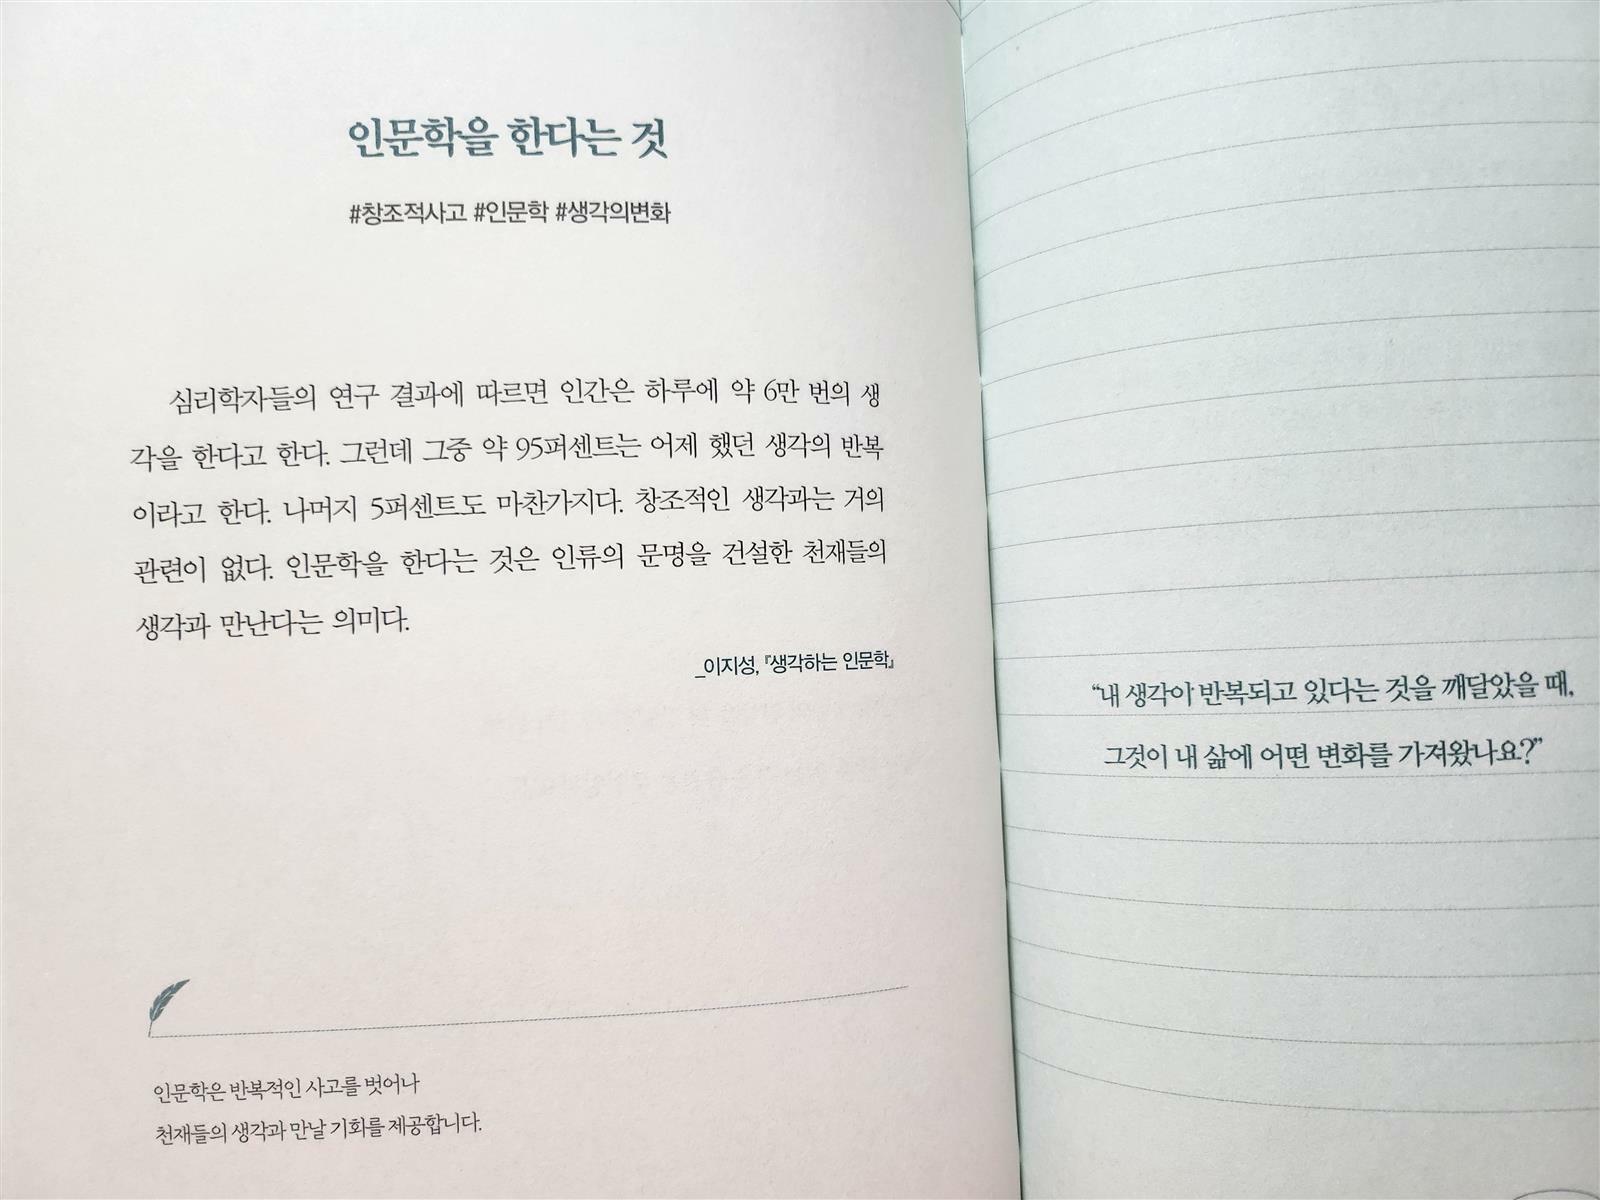 인문학을 한다는 것
#창조적사고 #인문학 #생각의변화
심리학자들의 연구 결과에 따르면 인간은 하루에 약 6만 번의 생
각을 한다고 한다. 그런데 그중 약 95퍼센트는 어제 했던 생각의 반복
이라고 한다. 나머지 5퍼센트도 마찬가지다. 창조적인 생각과는 거의
관련이 없다. 인문학을 한다는 것은 인류의 문명을 건설한 천재들의
생각과 만난다는 의미다.
_이지성, 『생각하는 인문학』
인문학은 반복적인 사고를 벗어나
천재들의 생각과 만날 기회를 제공합니다.
“내 생각이 반복되고 있다는 것을 깨달았을 때,
그것이 내 삶에 어떤 변화를 가져왔나요?”